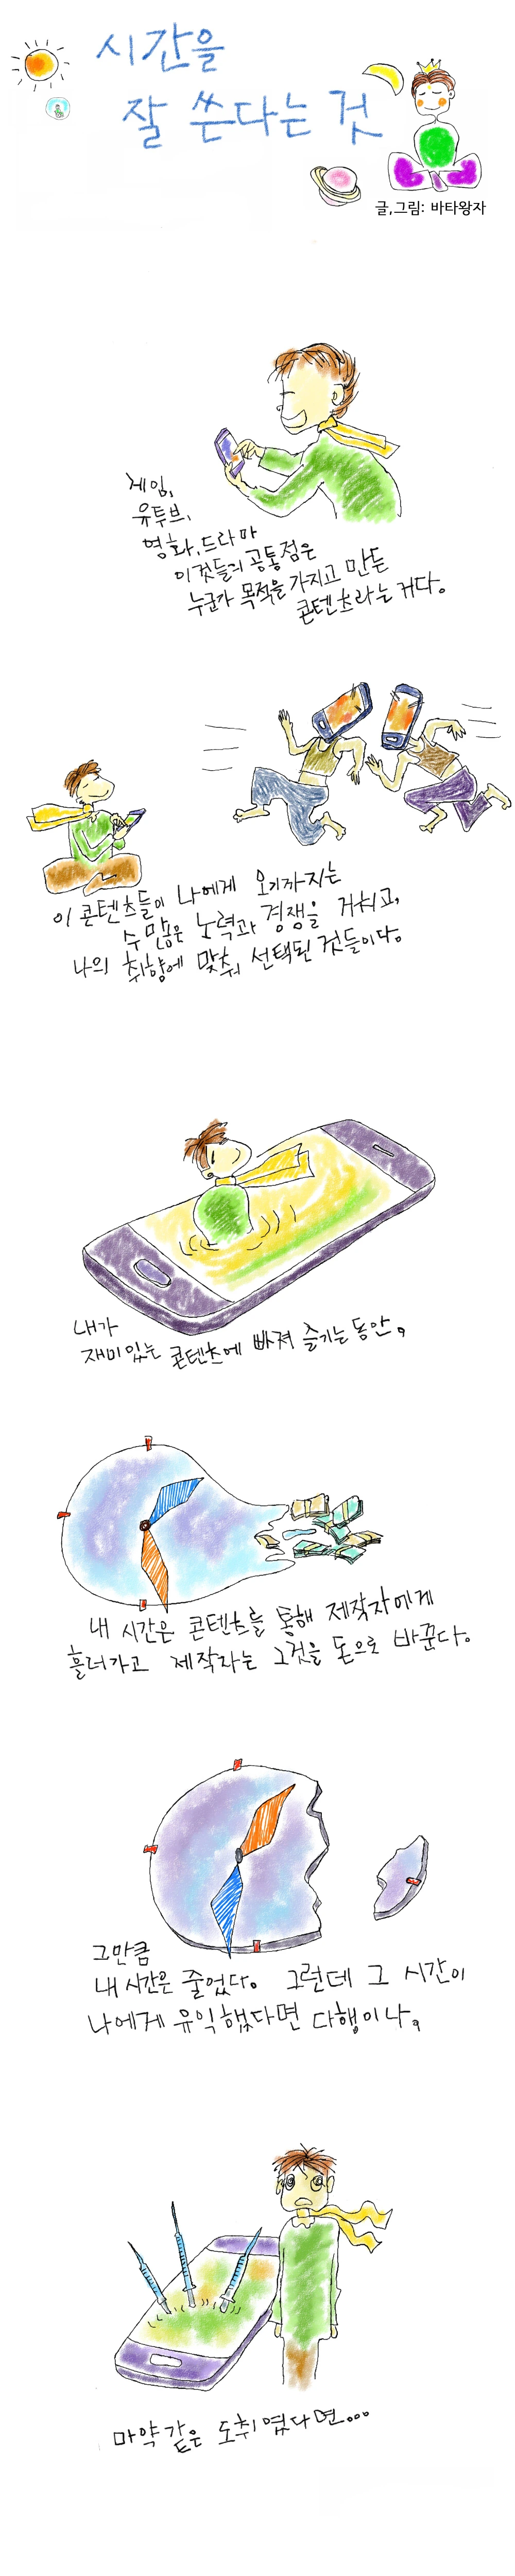 시간을
잘 쓴다는 것
글,그림: 바타왕자
게임,
유투브,
영화, 드라마
이것들의 공통점은
누군가 목적을 가지고 만든
콘텐츠라는 거다.
이 콘텐츠들이 나에게 오기까지는
수많은 노력과 경쟁을 거치고,
나의 취향에 맞춰 선택된 것들이다.
내가
재미있는 콘텐츠에 빠져 즐기는 동안,
내 시간은 콘텐츠를 통해 제작자에게
흘러가고 제작자는 그것을 돈으로 바꾼다.
그만큼
내 시간은 줄었다. 그런데 그 시간이
나에게 유익했다면 다행이나,
마약 같은 도취였다면...